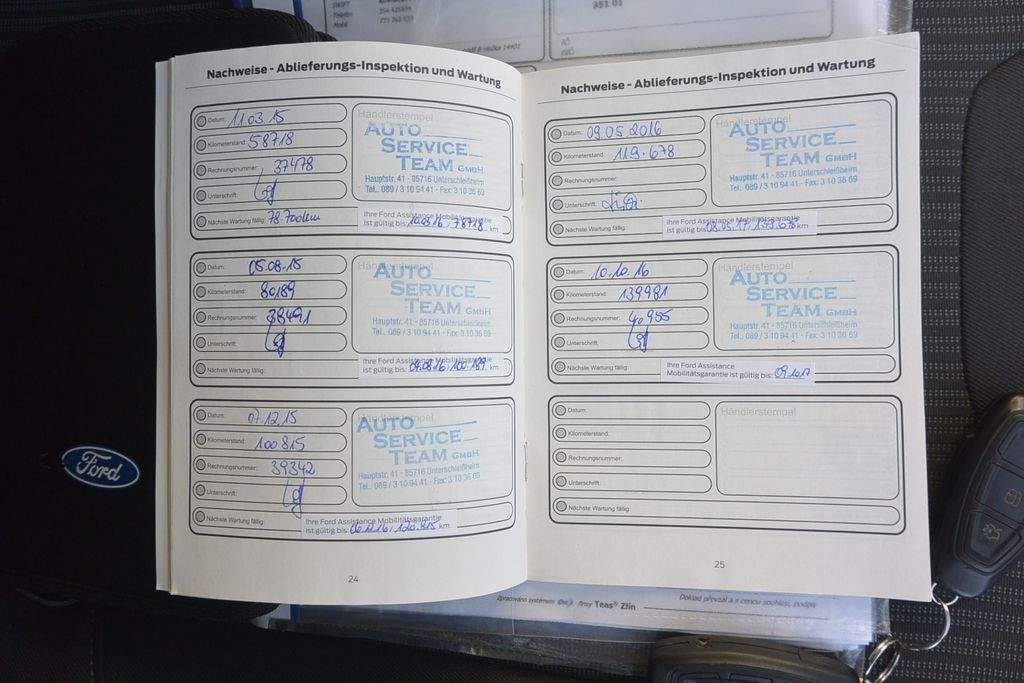 351 01
IČ
DIČ
Nachweise - Ablieferungs-Inspektion und Wartung
Datum: 11.03.15
Händlerstempel
Kilometerstand: 58718
Rechnungsnummer: 37478
Unterschrift:
Nächste Wartung fällig: 78.700km
AUTO
SERVICE
TEAM GMBH
Hauptstr. 41 · 85716 Unterschleißheim
Tel.. 089 / 3 10 94 41 · Fax: 3 10 36 69
Ihre Ford Assistance Mobilitätsgarantie
ist gültig bis: 10.03.16 / 78718 km
Datum: 05.08.15
Händlerstempel
Kilometerstand: 80189
Rechnungsnummer: 38491
Unterschrift:
Nächste Wartung fällig:
AUTO
SERVICE
TEAM GMBH
Hauptstr. 41 · 85716 Unterschleißheim
Tel.. 089 / 3 10 94 41 · Fax: 3 10 36 69
Ihre Ford Assistance Mobilitätsgarantie
ist gültig bis: 04.08.16/100.189 km
Datum: 07.12.15
Händlerstempel
Kilometerstand: 100815
Rechnungsnummer: 39342
Unterschrift:
Nächste Wartung fällig:
AUTO
SERVICE
TEAM GMBH
Hauptstr. 41 · 85716 Unterschleißheim
Tel.. 089 / 3 10 94 41 · Fax: 3 10 36 69
Ihre Ford Assistance Mobilitätsgarantie
ist gültig bis: 06.12.16 / 120.815 km
24
Nachweise - Ablieferungs-Inspektion und Wartung
Datum: 09.05.2016
Händlerstempel
Kilometerstand: 119.678
Rechnungsnummer:
Unterschrift:
Nächste Wartung fällig:
AUTO
SERVICE
TEAM GMBH
Hauptstr. 41 · 85716 Unterschleißheim
Tel.. 089 / 3 10 94 41 · Fax: 3 10 36 69
Ihre Ford Assistance Mobilitätsgarantie
ist gültig bis: 08.05.17/139.678 km
Datum: 10.10.16
Händlerstempel
Kilometerstand: 139981
Rechnungsnummer: 40955
Unterschrift:
Nächste Wartung fällig:
AUTO
SERVICE
TEAM GMBH
Hauptstr. 41 · 85716 Unterschleißheim
Tel.. 089 / 3 10 94 41 · Fax: 3 10 36 69
Ihre Ford Assistance
Mobilitätsgarantie ist gültig bis: 09.10.17
Datum:
Händlerstempel
Kilometerstand:
Rechnungsnummer:
Unterschrift:
Nächste Wartung fällig:
25
Ford
Zpracováno systémem firmy Teas® Zlín
Doklad převzal a s cenou souhlasí, podpis